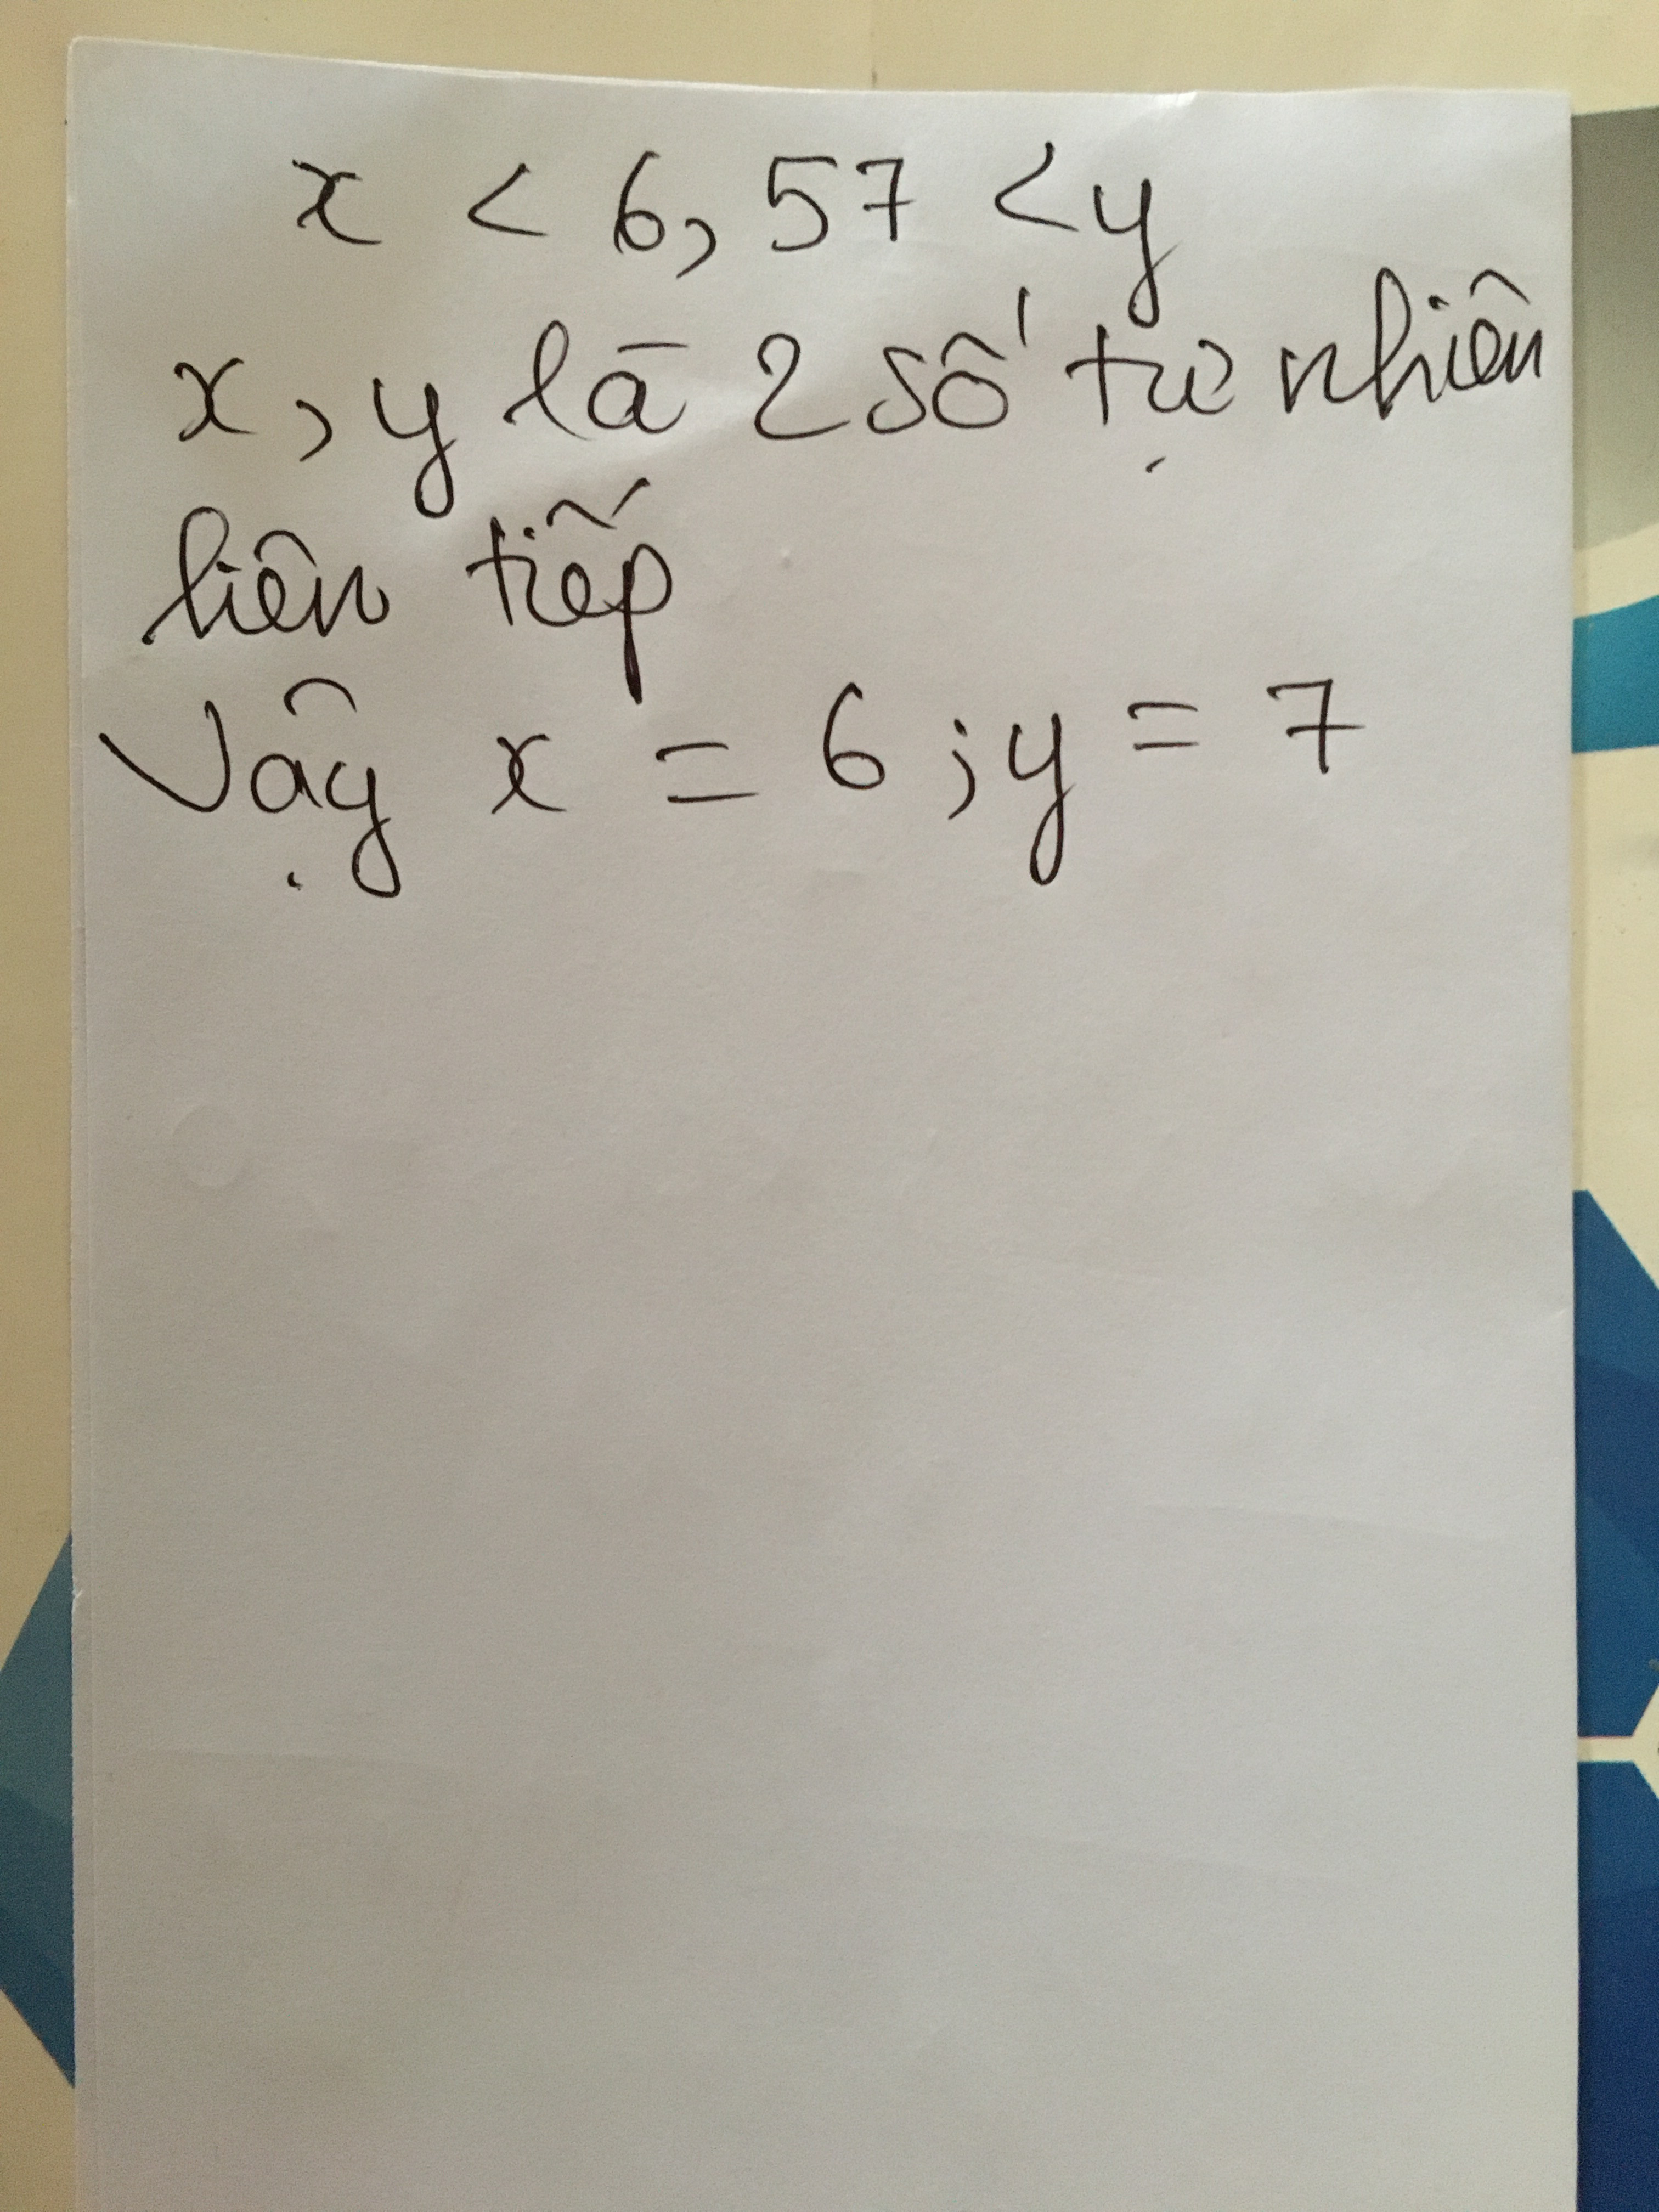 x < 6,57 < y
x, y là 2 số tự nhiên
liên tiếp
Vậy x = 6 ; y = 7